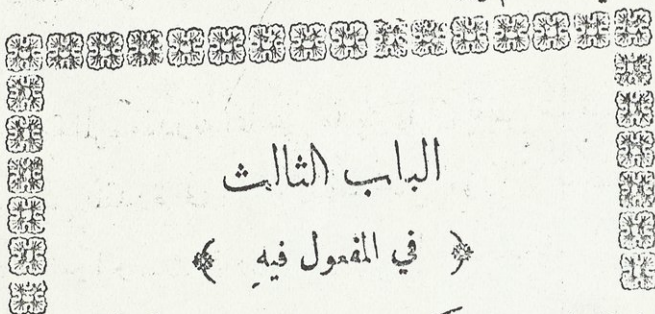 الباب الثالث
﴿ في المفعول فيهِ ﴾